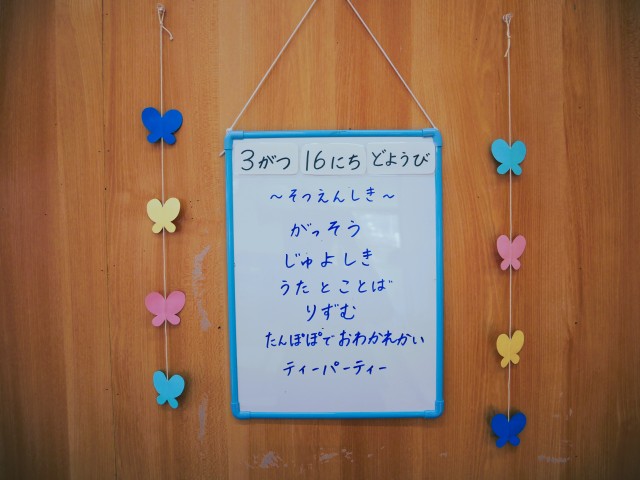 3がつ 16にち どようび
～そつえんしき～
がっそう
じゅよしき
うたとことば
りずむ
たんぽぽでおわかれかい
ティーパーティー